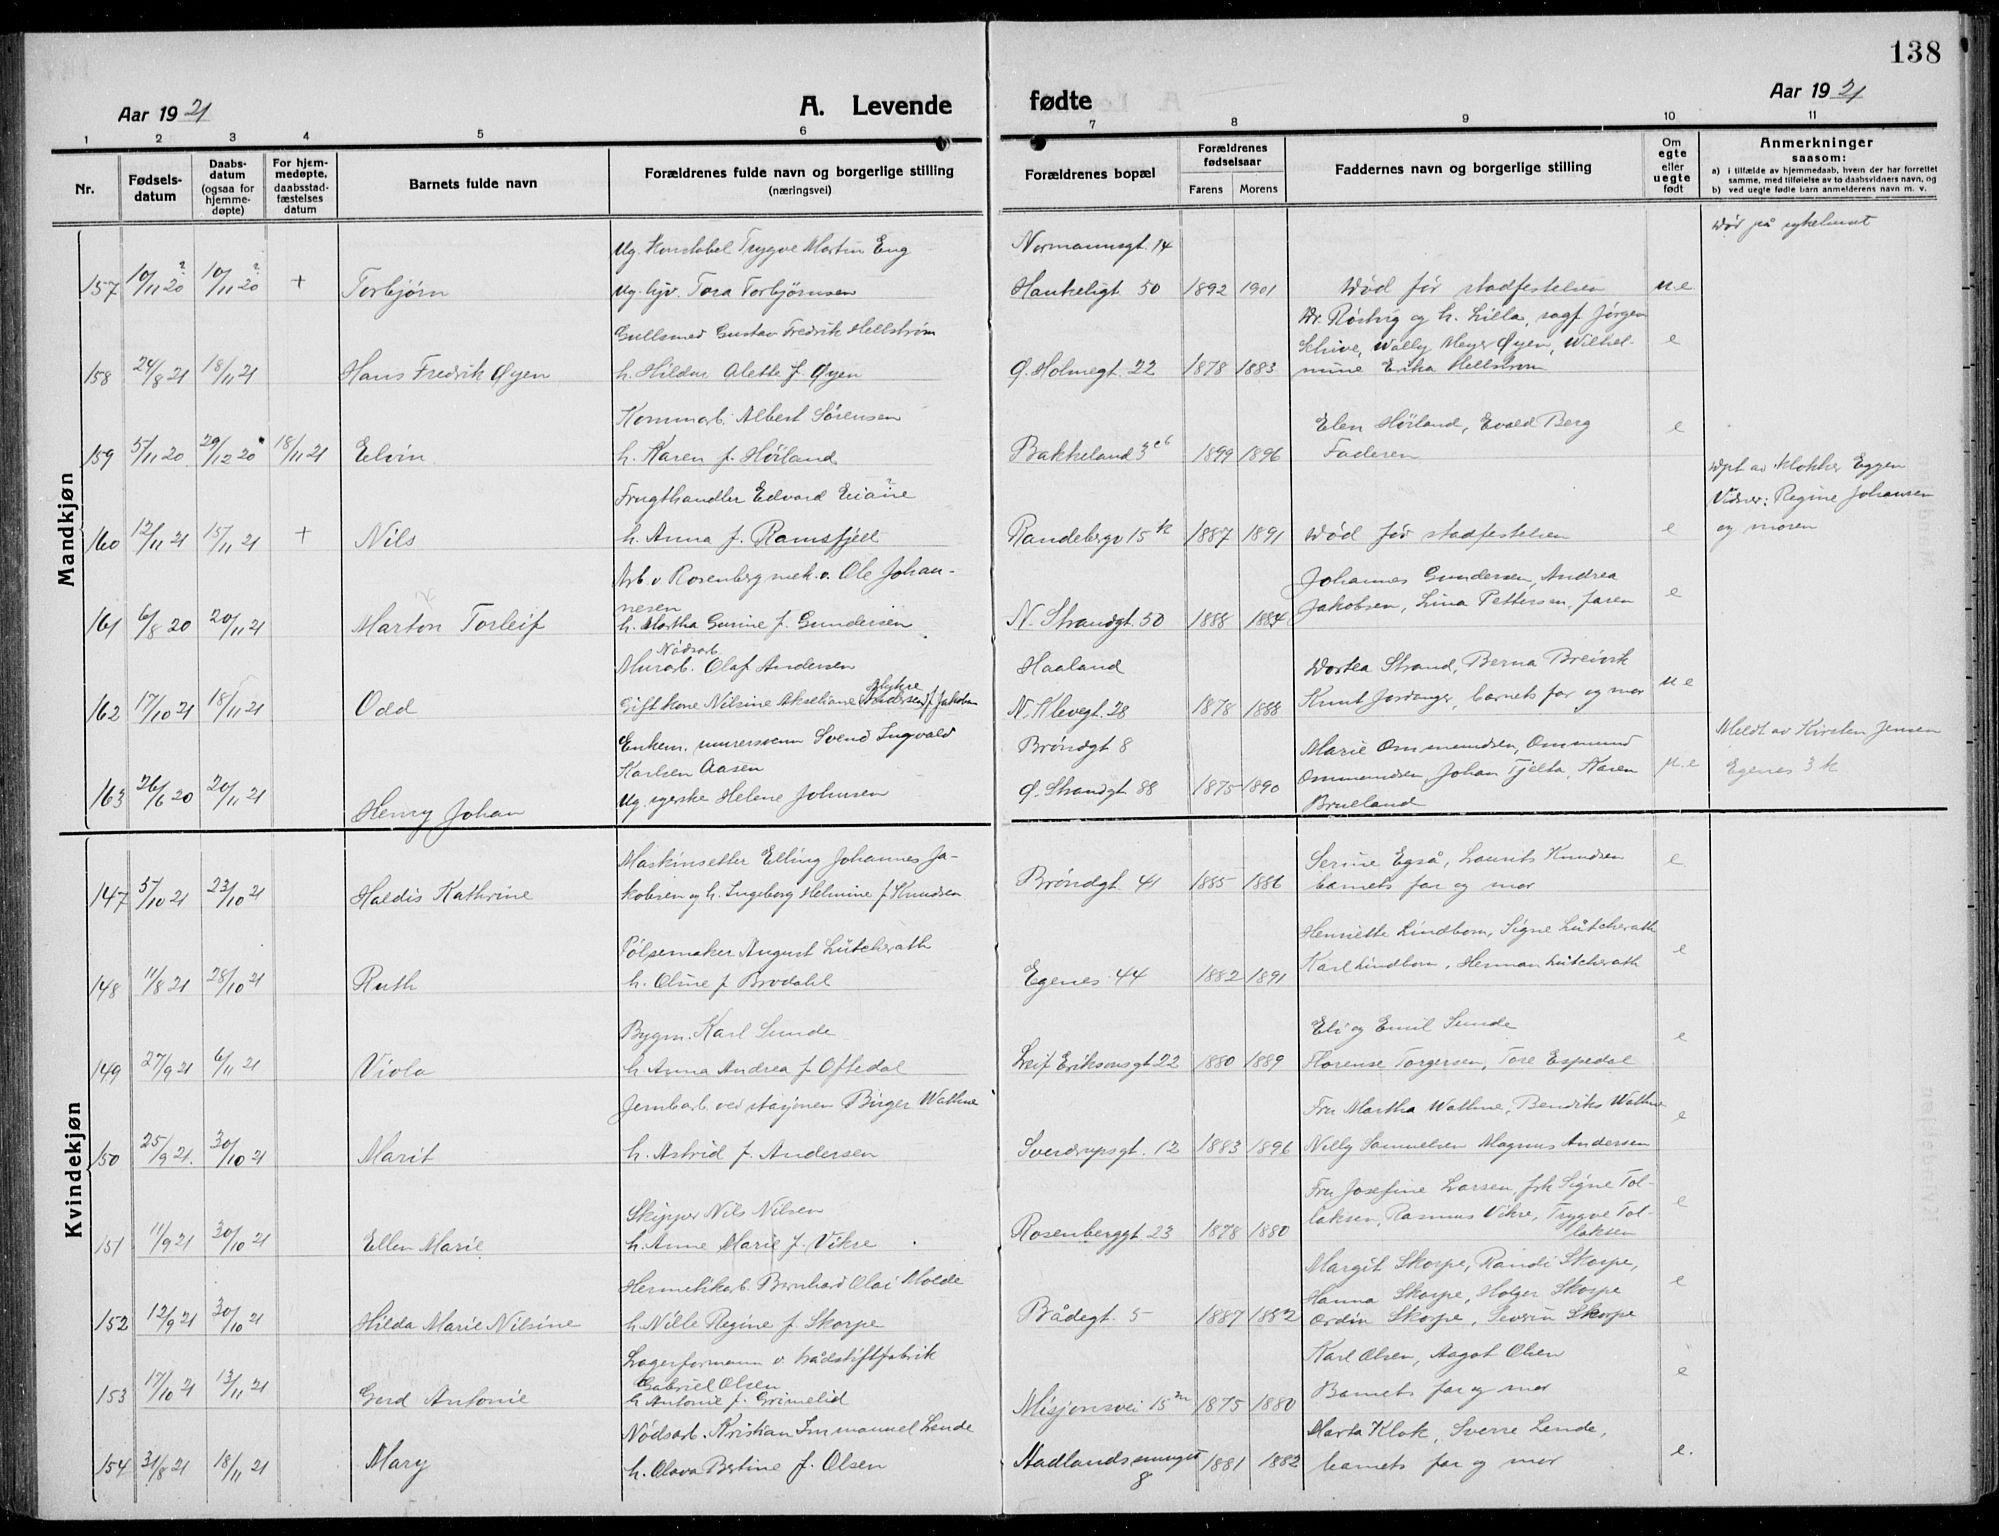 138
Aar 1921
A. Levende fødte
Aar 1921
1 2 3 4 5 6 7 8 9 10 11
Nr.
Fødselsdatum
Daabsdatum (ogsaa for hjemmedøpte)
For hjemmedøpte, daabsstadfæstelses datum
Barnets fulde navn
Forældrenes fulde navn og borgerlige stilling
(næringsvei)
Forældrenes bopæl
Forældrenes fødselsaar
Farens Morens
Faddernes navn og borgerlige stilling
Om egte eller uegte født
Anmerkninger
saasom:
a) i tilfælde av hjemmedaab, hvem der har forrettet
samme, med tilføielse av to daabsvidners navn, og
b) ved uegte fødte barn anmelderens navn m. v.
Mandkjøn
Ug. Konstabel Trygve Martin Eng Normannsgt. 14 Død på sykehuset
157 10/11 20 ? 10/11 20 ? + Torbjørn Ug. hjv. Tora Torbjørnsen Haukeligt. 50 1892 1901 Død før stadfestelsen u.e
Gullsmed Gustav Fredrik Hellstrøm Dr. Røstvig og h. Lilla, sagf. Jørgen
Schive, Wally Meyer Øyen, Wilhel- e
158 24/8 21 18/11 21 Hans Fredrik Øyen h. Hildur Alette f. Øyen Ø. Holmegt. 22 1878 1883 mine Erika Hellstrøm
Kommarb. Albert Sørensen Elen Høiland, Evald Berg e
159 5/11 20 29/12 20 18/11 21 Elvin h. Karen f. Høiland Bakkeland 3 1899 1896 Faderen
Frugthandler Edvard Eiane ? Dpt av klokker Eggen
Vidner: Regine Johansen
160 12/11 21 15/11 21 + Nils h. Anna f. Ramsfjell Randebergv 15 k 1887 1891 Død før stadfestelsen e og moren
Arb. v. Rosenberg mek. v. Ole Johan- Johannes Gundersen, Andrea
nesen Jakobsen, Lina Pettersen, faren e
161 6/8 20 20/11 21 Marton Torleif h. Martha Gurine f. Gundersen N. Strandgt. 50 1888 1884
Nødsarb.
Murarb. Olaf Andersen Haaland Dortea Strand, Berna Breivik
162 17/10 21 18/11 21 Odd Gift kone Nilsine Akseliane Andersen f. Jakobsen N. Klevegt. 28 1878 1888 Knut Jordanger, barnets far og mor u e
Enkem. murersvenn Svend Ingvald Brøndgt 8 Marie Ommundsen, Ommund Meldt av Kirsten Jensen
Karlsen Aasen Ommundsen, Johan Tjelta, Karen u.e Egenes 3 k
163 26/6 20 20/11 21 Henry Johan Ug. syerske Helene Johnsen Ø. Strandgt 88 1875 1890 Brueland
Kvindekjøn
Maskinsetter Elling Johannes Ja- Serine Egså, Laurits Knudsen e
147 5/10 21 23/10 21 Haldis Kathrine kobsen og h. Ingeborg Helmine f Knudsen Brøndgt. 41 1885 1886 barnets far og mor
Pølsemaker August Lütcherath Henriette Lindbom, Signe Lütcherath
148 11/8 21 28/10 21 Ruth h. Oline f Brodahl Egenes 44 1882 1891 Karl Lindbom, Herman Lütcherath e
Bygm. Karl Sunde Eli og Emil Sunde e
149 27/9 21 6/11 21 Viola h. Anna Andrea f Oftedal Leif Eriksonsgt 22 1880 1889 Florense Torgersen, Tore Espedal
Jernbarb. ved stasjonen Birger Wathne Fru Martha Wathne, Bendiks Wathne e
150 25/9 21. 30/10 21 Marit h. Astrid f. Andersen Sverdrupsgt. 12 1883 1896 Nelly Samuelsen Magnus Andersen
Fru Josefine Larsen, frk Signe Tol-
Skipper Nils Nilsen laksen, Rasmus Vikse, Trygve Tol- e
151 11/9 21 30/10 21 Ellen Marie h. Anne Marie f. Vikse Rosenberggt 23 1878 1880 laksen
Hermetikkarb. Bernhard Olai Molde Margit Skorpe, Randi Skorpe,
Hanna Skorpe, Holger Skorpe e
152 12/9 21 30/10 21 Hilda Marie Nilsine h. Nille Regine f. Skorpe Bådegt. 5 1887 1882 Ordin Skorpe, Severin Skorpe
Lagerformann v. trådstiftfabrik Karl Olsen, Aagot Olsen
Gabriel Olsen e
153 17/10 21 13/11 21 Gerd Antonie h. Antonie f. Grimelid Misjonsvei 15 1875 1880 Barnets far og mor
Nødsarb. Kristian Immanuel Lende Marta Klok, Sverre Lende,
154 31/8 21 18/11 21 Mary h. Olava Bertine f. Olsen 8 1881 1882 barnets far og mor e.